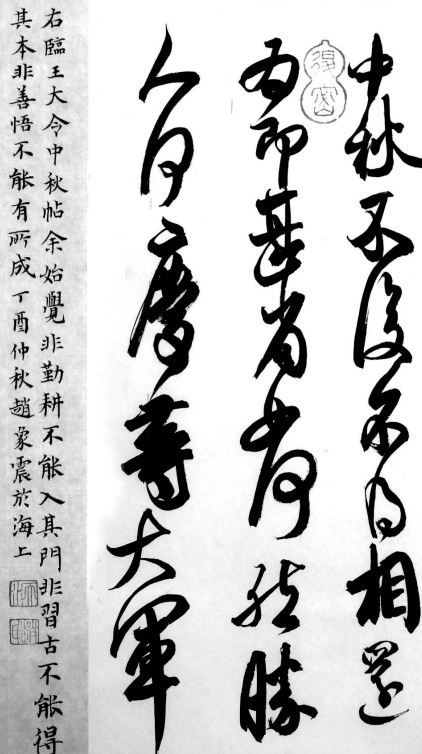 中秋不復不得相還
為即甚省如何然勝
人何慶等大軍
右臨王大令中秋帖余始覺非勤耕不能入其門非習古不能得
其本非善悟不能有所成丁酉仲秋趙象震於海上